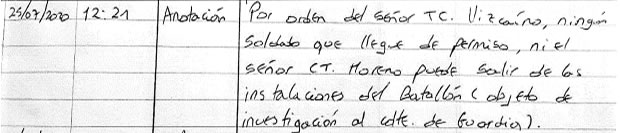 25/07/2020 12:21 Anotación Por orden del señor TC. Vizcaíno, ningún
soldado que llegue de permiso, ni el
señor CT. Moreno puede salir de las
instalaciones del Batallón (objeto de
investigación al cdte. de Guardia).